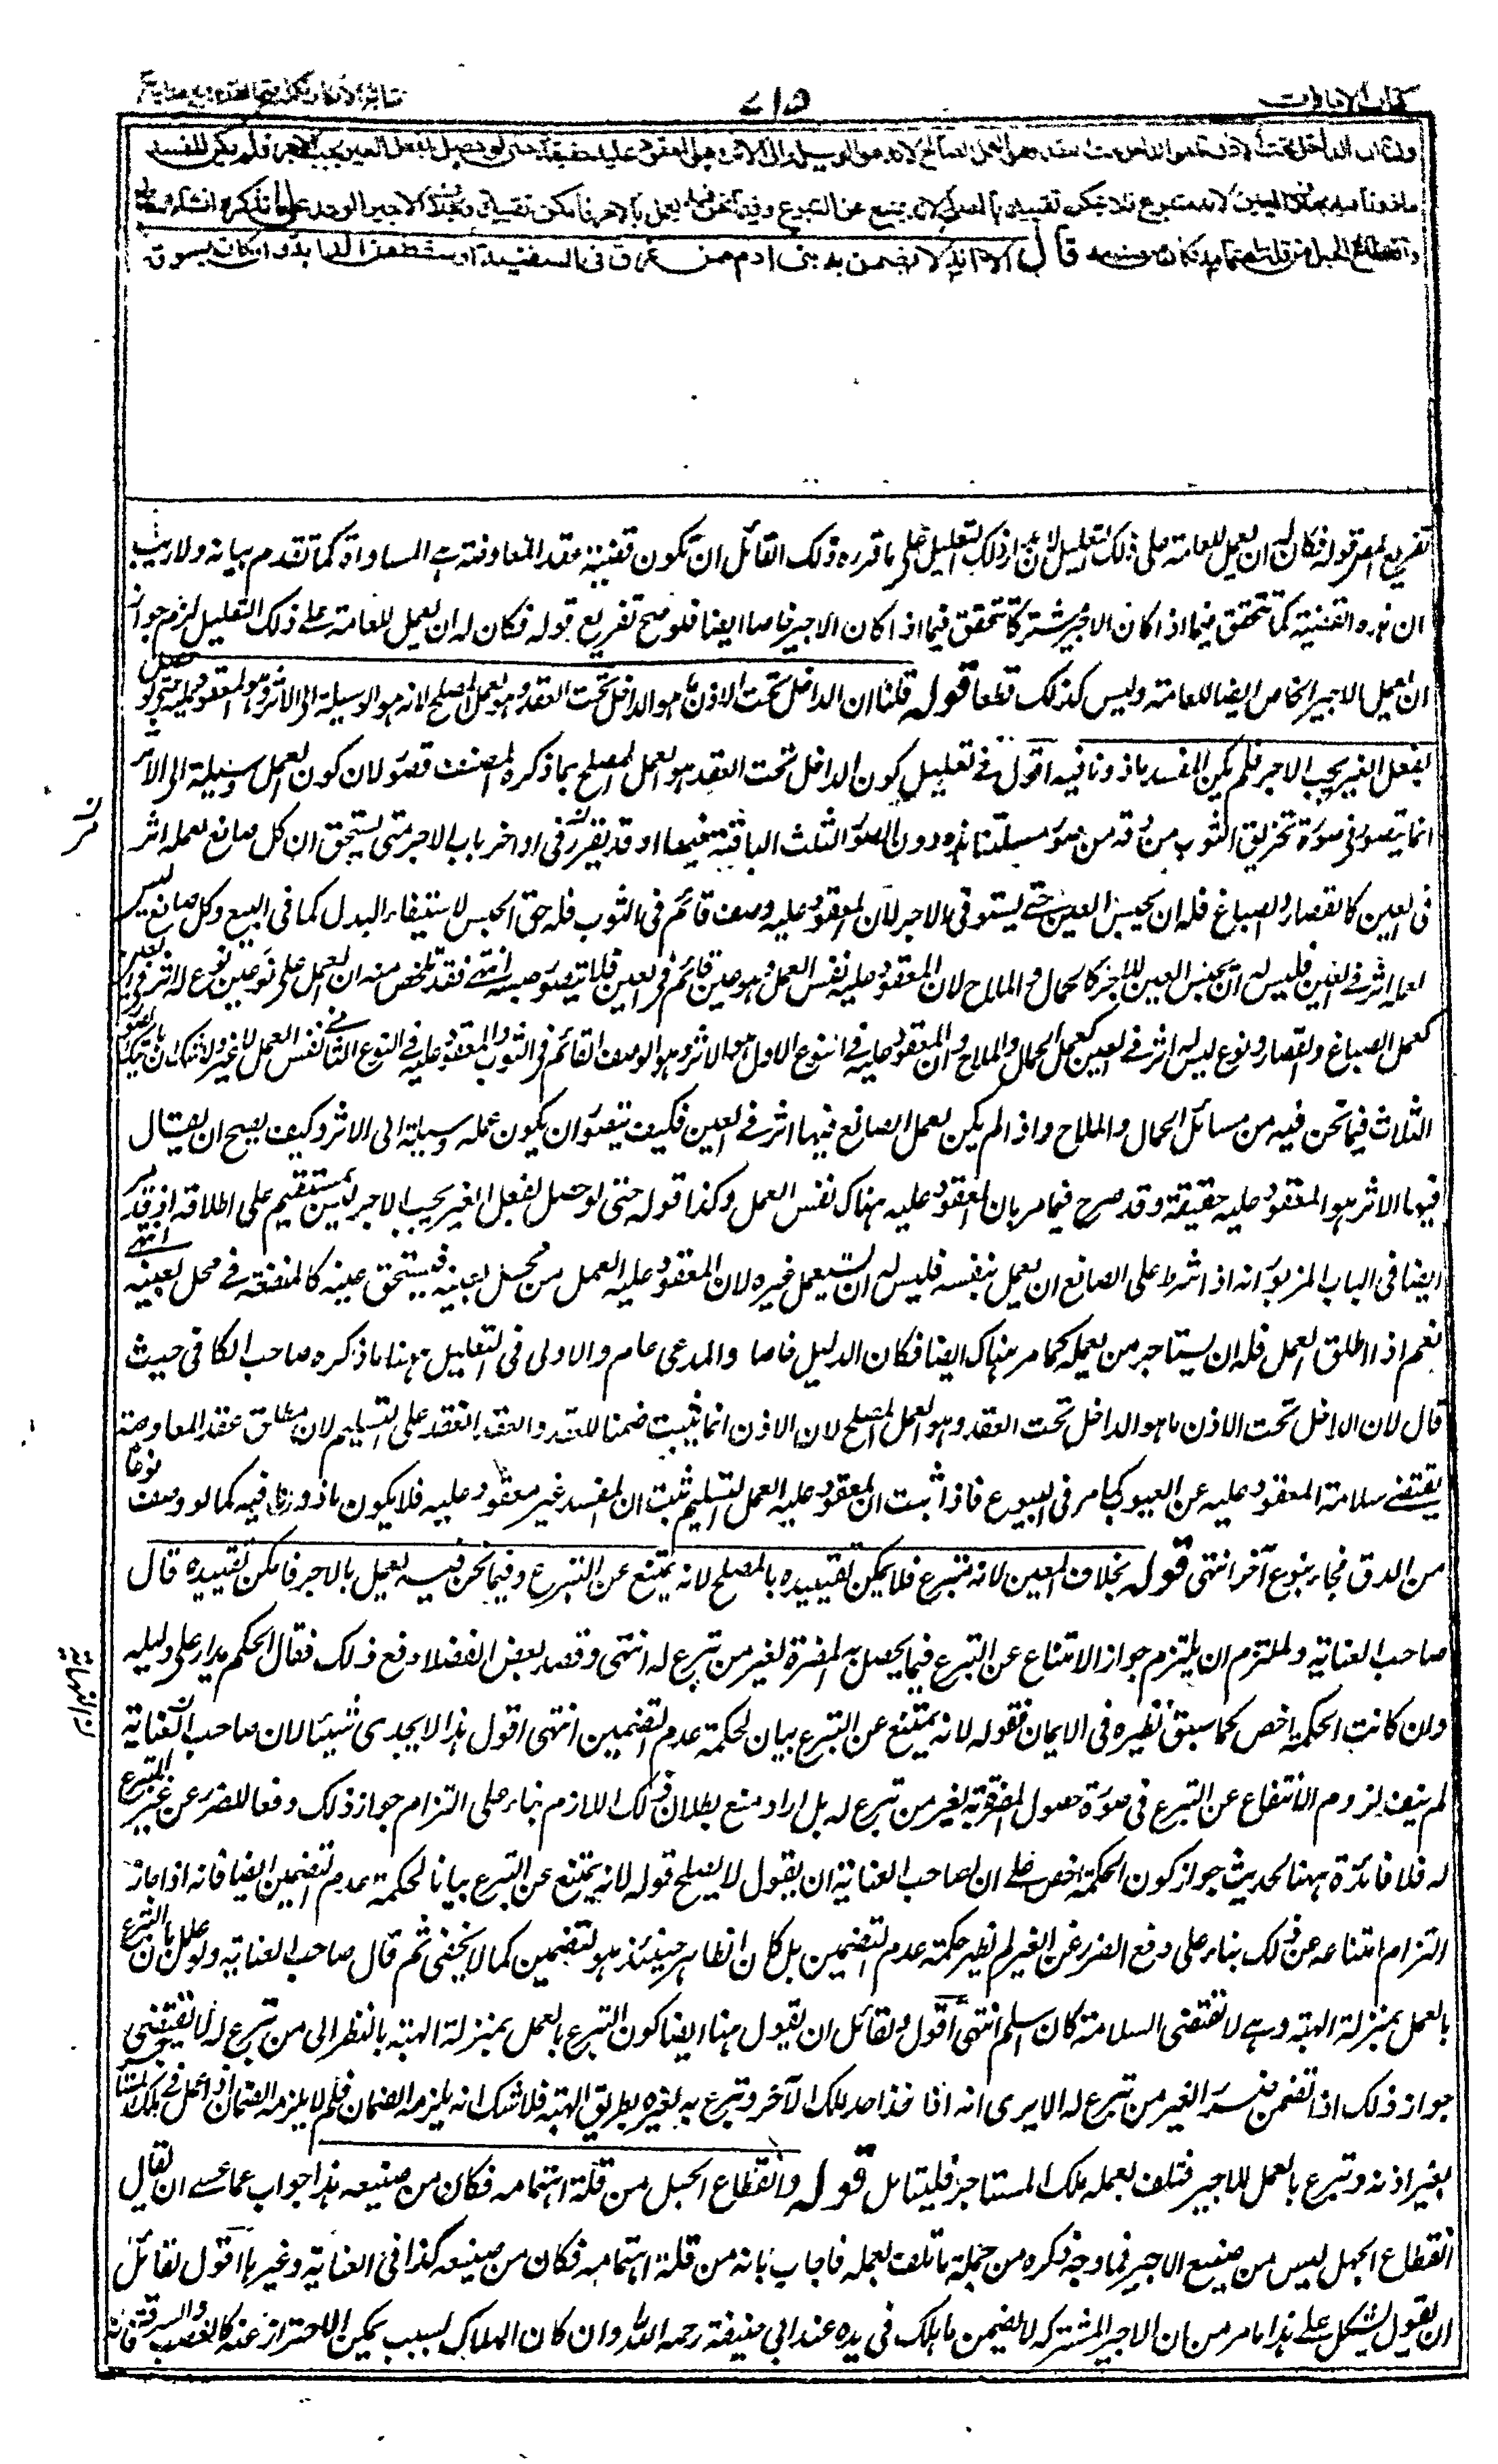 كتاب الاجارات
٢١٥
نتائج الافكار تكملة فتح القدير مع هداية
ولنا ان الداخل تحت الاذن ما هو الداخل تحت العقد وهو العمل المصلح لانه هو الوسيلة الى الاثر وهو المعقود عليه حقيقة حتى لو حصل بفعل الغير يجب الاجر فلم يكن المفسد
ماذونا فيه بخلاف المعين لانه متبرع فلا يمكن تقييده بالمصلح لانه يمتنع عن التبرع وفيما نحن فيه يعمل بالاجر فامكن تقييده وبخلاف الاجير الوحد على ما نذكره ان شاء الله تعالى
وانقطاع الحبل من قلة اهتمامه فكان من صنيعه قال الا انه لا يضمن به بنى ادم ممن غرق فى السفينة او سقط من الدابة وان كان بسوقه
تفريع المصر قوله فكان له ان يعمل للعامة على ذلك التعليل لان مدار ذلك التعليل على ما قرره ذلك القائل ان تكون قضية عقد المعاوضة هى المساواة كما تقدم بيانه ولا ريب
ان هذه القضية كما تتحقق فيما اذا كان الاجير مشتركا تتحقق فيما اذا كان الاجير خاصا ايضا فلو صح تفريع قوله فكان له ان يعمل للعامة على ذلك التعليل لزم جواز
ان يعمل الاجير الخاص ايضا للعامة وليس كذلك قطعا قوله قلنا ان الداخل تحت الاذن ما هو الداخل تحت العقد وهو العمل المصلح لانه هو الوسيلة الى الاثر وهو المعقود عليه حتى لو حصل
بفعل الغير يجب الاجر فلم يكن المفسد ماذونا فيه اقول فى تعليل كون الداخل تحت العقد هو العمل المصلح بما ذكره المصنف قصور لان كون العمل وسيلة الى الاثر
انما يتصور فى صورة تخريق الثوب من دقه من صور مسئلتنا هذه دون الصور الثلث الباقية منها اذ قد تقرر فى اواخر باب الاجر متى يستحق ان كل صانع لعمله اثر
فى العين كالقصار والصباغ فله ان يحبس العين حتى يستوفى الاجر لان المعقود عليه وصف قائم فى الثوب فله حق الحبس لاستيفاء البدل كما فى البيع وكل صانع ليس
لعمله اثر فى العين فليس له ان يحبس العين للاجر كالحمال والملاح لان المعقود عليه نفس العمل وهو عين قائم فى العين فلا يتصور حبسه انتهى فقد تلخص منه ان العمل على نوعين نوع له اثر فى العين
كعمل الصباغ والقصار ونوع ليس له اثر فى العين كعمل الحمال والملاح وان المعقود عليه فى النوع الاول هو الاثر وهو الوصف القائم فى الثوب والمعقود عليه فى النوع الثانى نفس العمل لا غير ولا شك ان تيك الصور
الثلاث فيما نحن فيه من مسائل الحمال والملاح واذا لم يكن لعمل الصانع فيها اثر فى العين فكيف يتصور ان يكون عمله وسيلة الى الاثر وكيف يصح ان يقال
فيها الاثر هو المعقود عليه حقيقة وقد صرح فيما مر بان المعقود عليه هناك نفس العمل وكذا قوله حتى لو حصل بفعل الغير يجب الاجر ليس بمستقيم على اطلاقه اذ قد مر
ايضا فى الباب المزبور انه اذا شرط على الصانع ان يعمل بنفسه فليس له ان يستعمل غيره لان المعقود عليه العمل من محل بعينه فيستحق عينه كالمنفعة فى محل بعينه انتهى
نعم اذا اطلق العمل فله ان يستاجر من يعمله كما مر هناك ايضا فكان الدليل خاصا والمدعى عام والاولى فى التعليل ههنا ما ذكره صاحب الكافى حيث
قال لان الداخل تحت الاذن ما هو الداخل تحت العقد وهو العمل المصلح لان الاذن انما يثبت ضمنا للعقد والعقد انعقد على التسليم لان مطلق عقد المعاوضة
يقتضى سلامة المعقود عليه عن العيوب كما مر فى البيوع فاذا ثبت ان المعقود عليه العمل السليم ثبت ان المفسد غير معقود عليه فلا يكون ماذونا فيه كما لو وصف نوعا
من الدق فجاء بنوع آخر انتهى قوله بخلاف المعين لانه متبرع فلا يمكن تقييده بالمصلح لانه يمتنع عن التبرع وفيما نحن فيه يعمل بالاجر فامكن تقييده قال
صاحب العناية ولملتزم ان يلتزم جواز الامتناع عن التبرع فيما يحصل به المضرة لغير من تبرع له انتهى وقصد بعض الفضلاء دفع ذلك فقال الحكم يدار على دليله
وان كانت الحكمة اخص كما سبق نظيره فى الايمان فقوله لانه يمتنع عن التبرع بيان لحكمة عدم التضمين انتهى اقول هذا لا يجدى شيئا لان صاحب العناية
لم ينف لزوم الامتناع عن التبرع فى صورة حصول المضرة به لغير من تبرع له بل اراد منع بطلان ذلك اللازم بناء على التزام جواز ذلك دفعا للضرر عن غير المتبرع
له فلا فائدة ههنا لحديث جواز كون الحكمة اخص على ان لصاحب العناية ان يقول لا يصلح قوله لانه يمتنع عن التبرع بيانا لحكمة عدم التضمين ايضا فانه اذا جاز
التزام امتناعه عن ذلك بناء على دفع الضرر عن الغير لم يظهر حكمة عدم التضمين بل كان الظاهر حينئذ هو التضمين كما لا يخفى ثم قال صاحب العناية ولو علل بان التبرع
بالعمل بمنزلة الهبة وهى لا تقتضى السلامة كان اسلم انتهى اقول ولقائل ان يقول هنا ايضا كون التبرع بالعمل بمنزلة الهبة بالنظر الى من تبرع له لا يقتضى
جواز ذلك اذا تضمن ضرر الغير من تبرع له الا يرى انه اذا اخذ احد ملك الآخر وتبرع به لغيره بطريق الهبة فلا شك انه يلزمه الضمان فلم لا يلزمه الضمان اذا عمل فى ملك المستاجر
بغير اذنه وتبرع بالعمل للاجير فتلف بعمله ملك المستاجر فليتامل قوله وانقطاع الحبل من قلة اهتمامه فكان من صنيعه هذا جواب عما عسى ان يقال
انقطاع الحبل ليس من صنيع الاجير فما وجه ذكره من جملة ما تلف بعمله فاجاب بانه من قلة اهتمامه فكان من صنيعه كذا فى العناية وغيرها اقول لقائل
ان يقول يشكل على هذا ما مر من ان الاجير المشترك لا يضمن ما هلك فى يده عند ابى حنيفة رحمه الله وان كان الهلاك بسبب يمكن الاحتراز عنه كالغصب والسرقة فانه